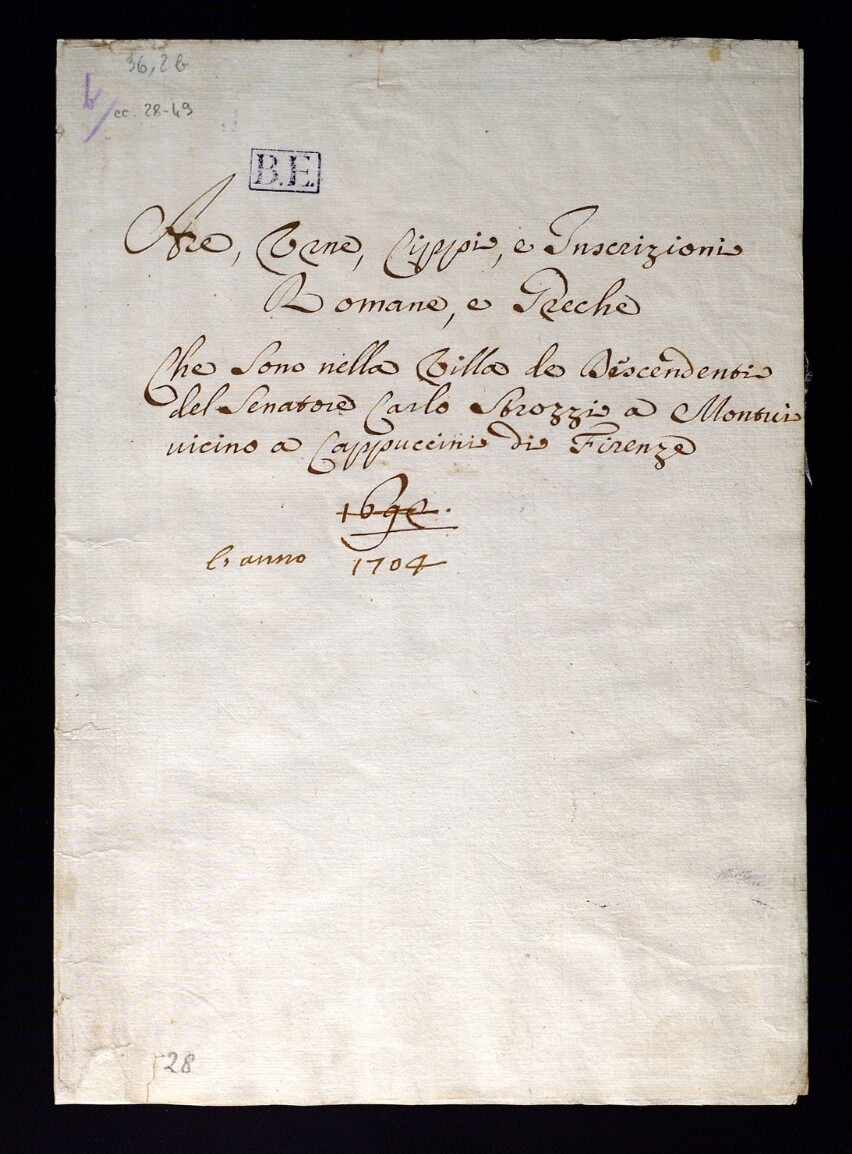 36,2 b
b
cc. 28-49
B.E.
Are, Urne, Cippi, e Inscrizioni
Romane, e Greche
Che sono nella Villa de Descendenti
del Senatore Carlo Strozzi a Montui
vicino a Cappuccini di Firenze
169
l'anno 1704
28